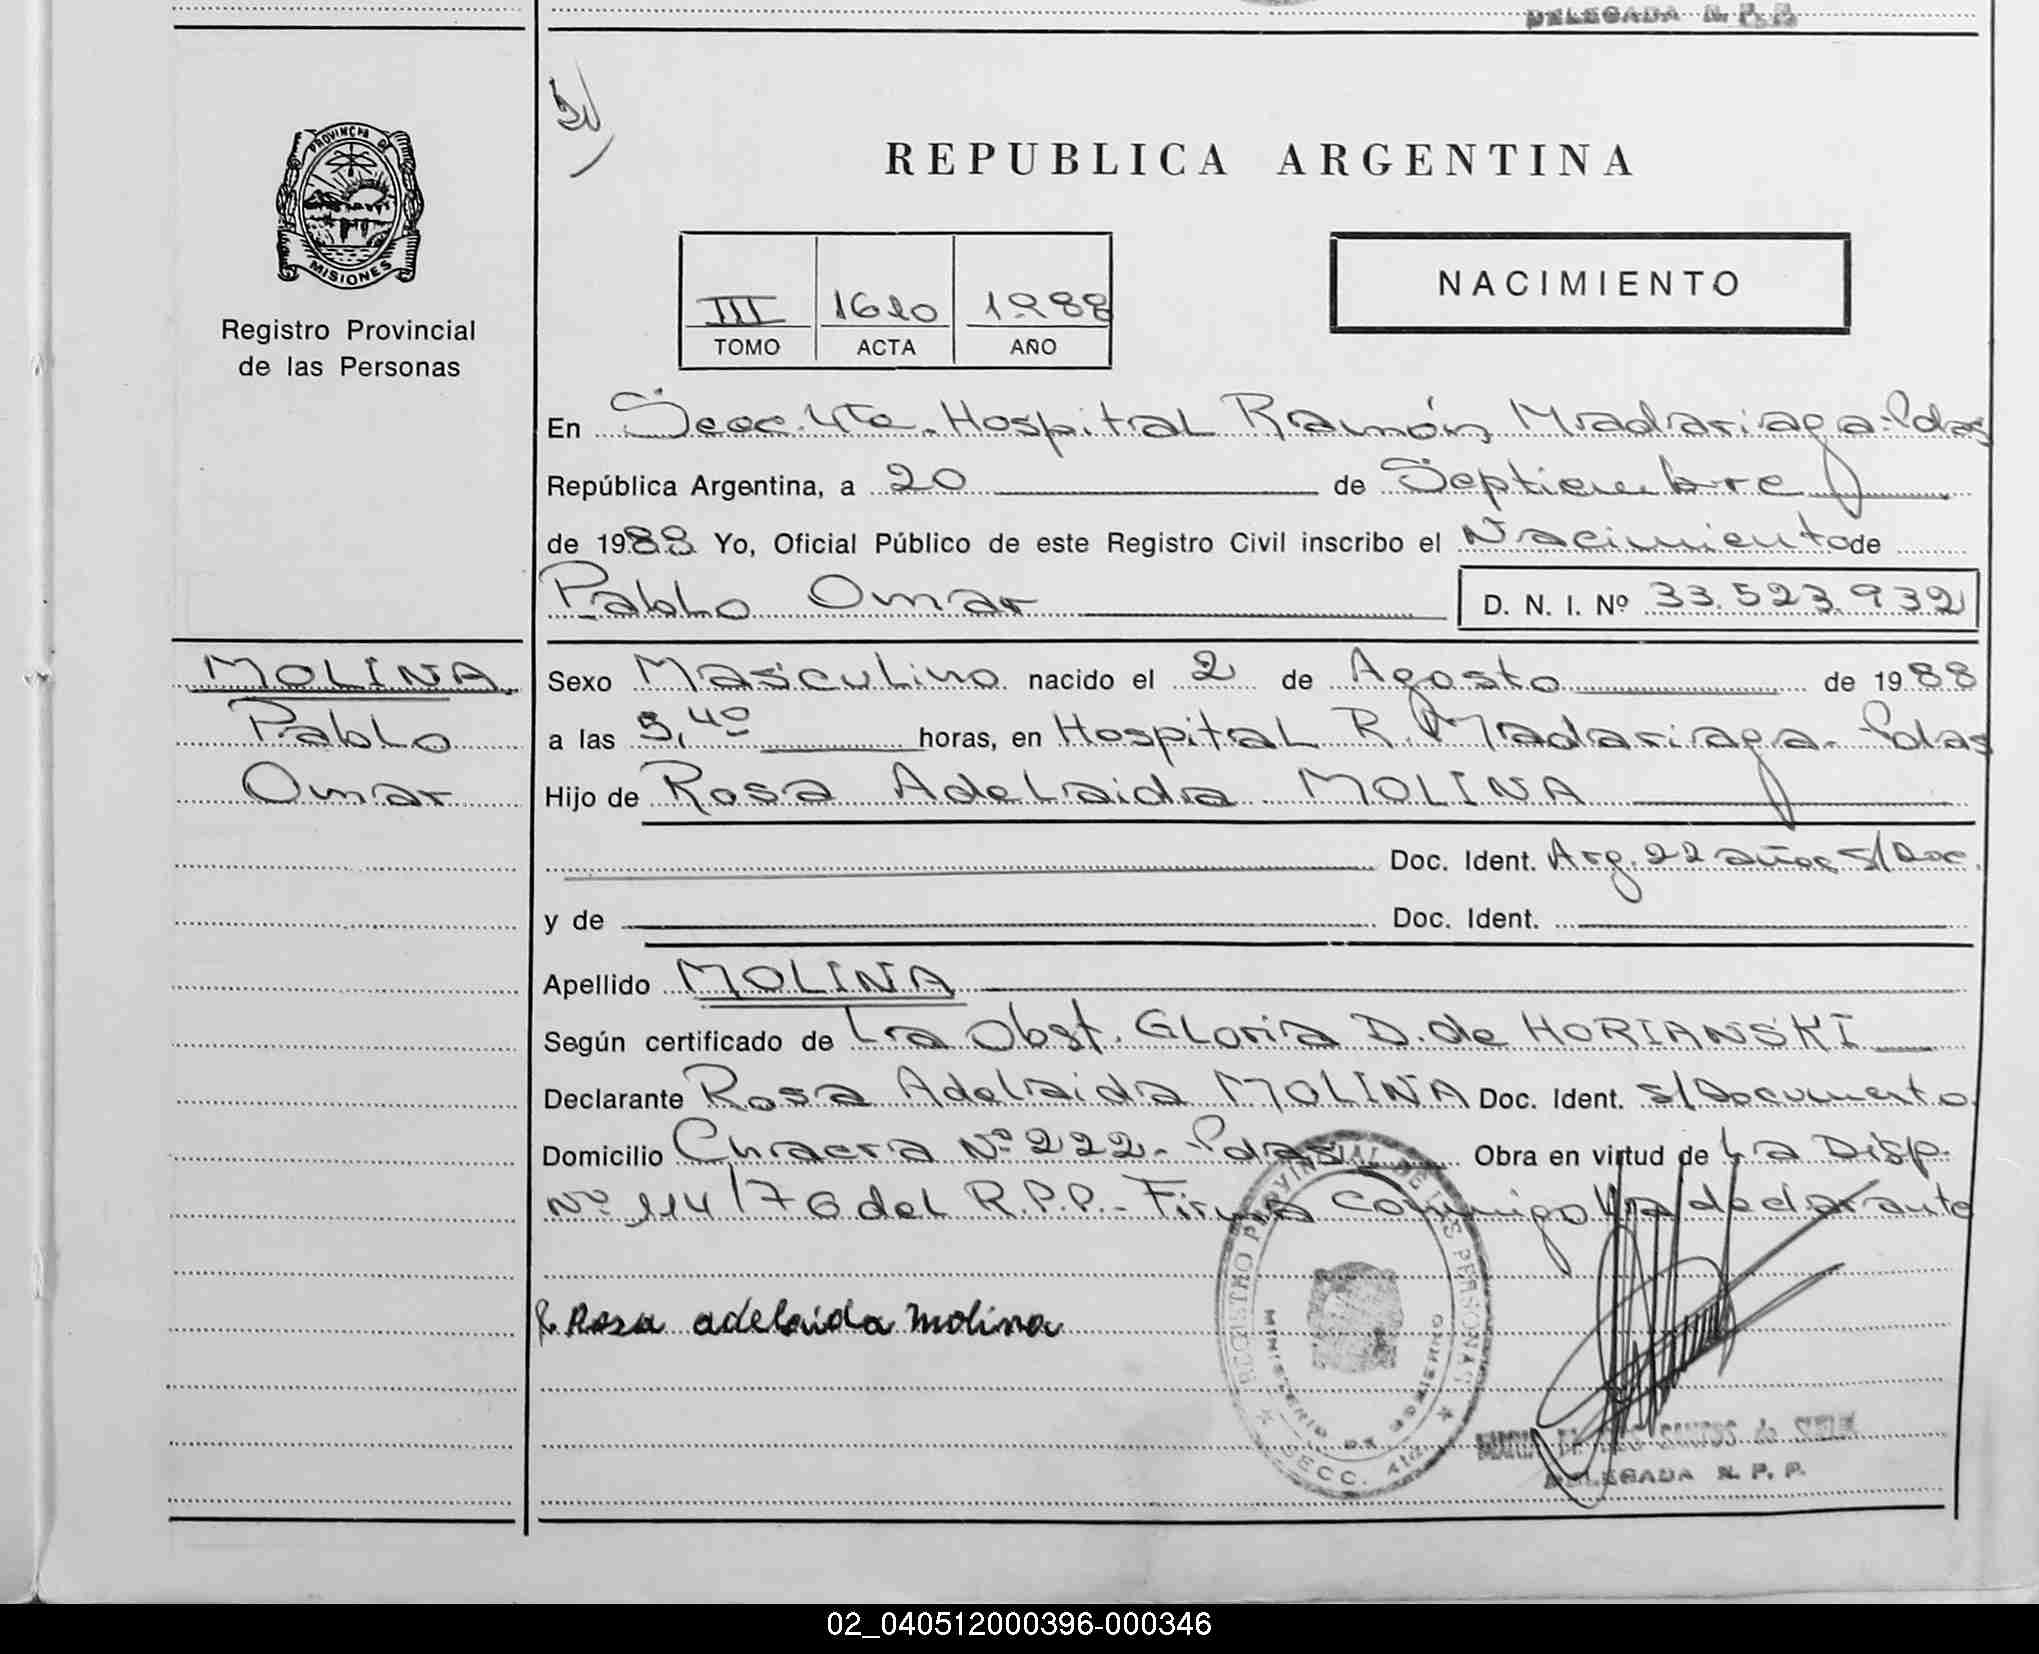 DELEGADA R. P. P.
PROVINCIA DE
MISIONES
Registro Provincial
de las Personas
REPUBLICA ARGENTINA
NACIMIENTO
III 1610 1988
TOMO ACTA AÑO
En Secc. 4ta. Hospital Ramón Madariaga-Pdas
República Argentina, a 20 de Septiembre
de 1988 Yo, Oficial Público de este Registro Civil inscribo el Nacimiento de
Pablo Omar D. N. I. Nº 33.523.932
MOLINA
Pablo
Omar
Sexo Masculino nacido el 2 de Agosto de 1988
a las 5,40 horas, en Hospital R. Madariaga-Pdas
Hijo de Rosa Adelaida MOLINA
Doc. Ident. Arg. 22 años s/Doc.
y de Doc. Ident.
Apellido MOLINA
Según certificado de La Obst. Gloria D. de HORIANSKI
Declarante Rosa Adelaida MOLINA Doc. Ident. s/Documento
Domicilio Chacra Nº 222- Pdas Obra en virtud de La Disp.
Nº 114/76 del R.P.P.- Firma conmigo la declarante
Rosa adelaida molina
REGISTRO PROVINCIAL DE LAS PERSONAS
MINISTERIO DE GOBIERNO
SECC. 4ta
MARIA SANTOS de
DELEGADA R. P. P.
02_040512000396-000346